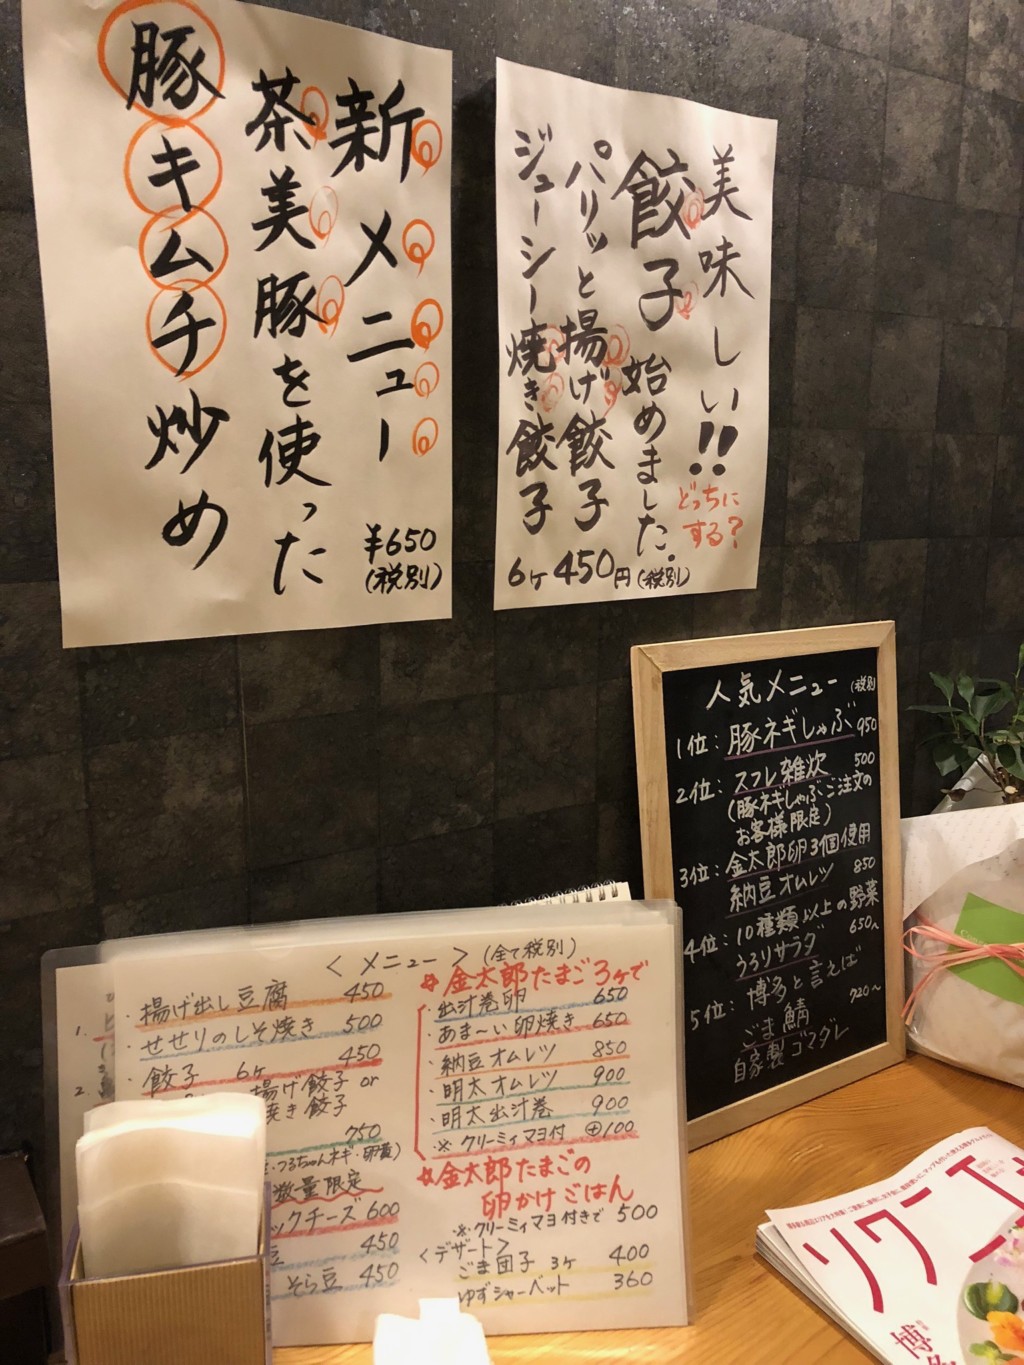 新メニュー
茶美豚を使った
豚キムチ炒め
¥650
(税別)
美味しい!!
餃子始めました。
パリッと揚げ餃子
ジューシー焼き餃子
どっちに
する?
6ヶ450円(税別)
人気メニュー (税別)
1位:豚ネギしゃぶ 950
2位:スフレ雑炊 500
(豚ネギしゃぶご注文の
お客様限定)
3位:金太郎卵3個使用
納豆オムレツ 850
4位:10種類以上の野菜
うろりサラダ 650〜
5位:博多と言えば
ごま鯖 720〜
自家製ゴマダレ
<メニュー> (全て税別)
・揚げ出し豆腐 450
・せせりのしそ焼き 500
・餃子 6ヶ 450
揚げ餃子 or
焼き餃子
750
・つるちゃんネギ・卵黄)
数量限定
ックチーズ 600
豆 450
そら豆 450
金太郎たまご3ヶで
・出汁巻卵 650
・あま〜い卵焼き 650
・納豆オムレツ 850
・明太オムレツ 900
・明太出汁巻 900
※クリーミィマヨ付 ⊕100
金太郎たまごの
卵かけごはん
※クリーミィマヨ付きで 500
<デザート>
ごま団子 3ヶ 400
ゆずシャーベット 360
1.
2.
リワーエ
博